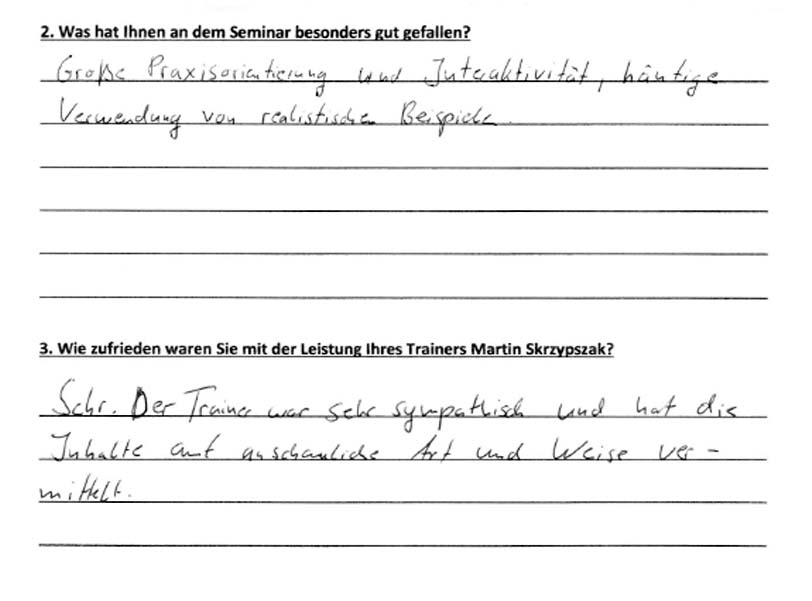 2. Was hat Ihnen an dem Seminar besonders gut gefallen?
Große Praxisorientierung und Interaktivität, häufige
Verwendung von realistischen Beispiele.
3. Wie zufrieden waren Sie mit der Leistung Ihres Trainers Martin Skrzypszak?
Sehr. Der Trainer war sehr sympathisch und hat die
Inhalte auf anschauliche Art und Weise ver-
mittelt.